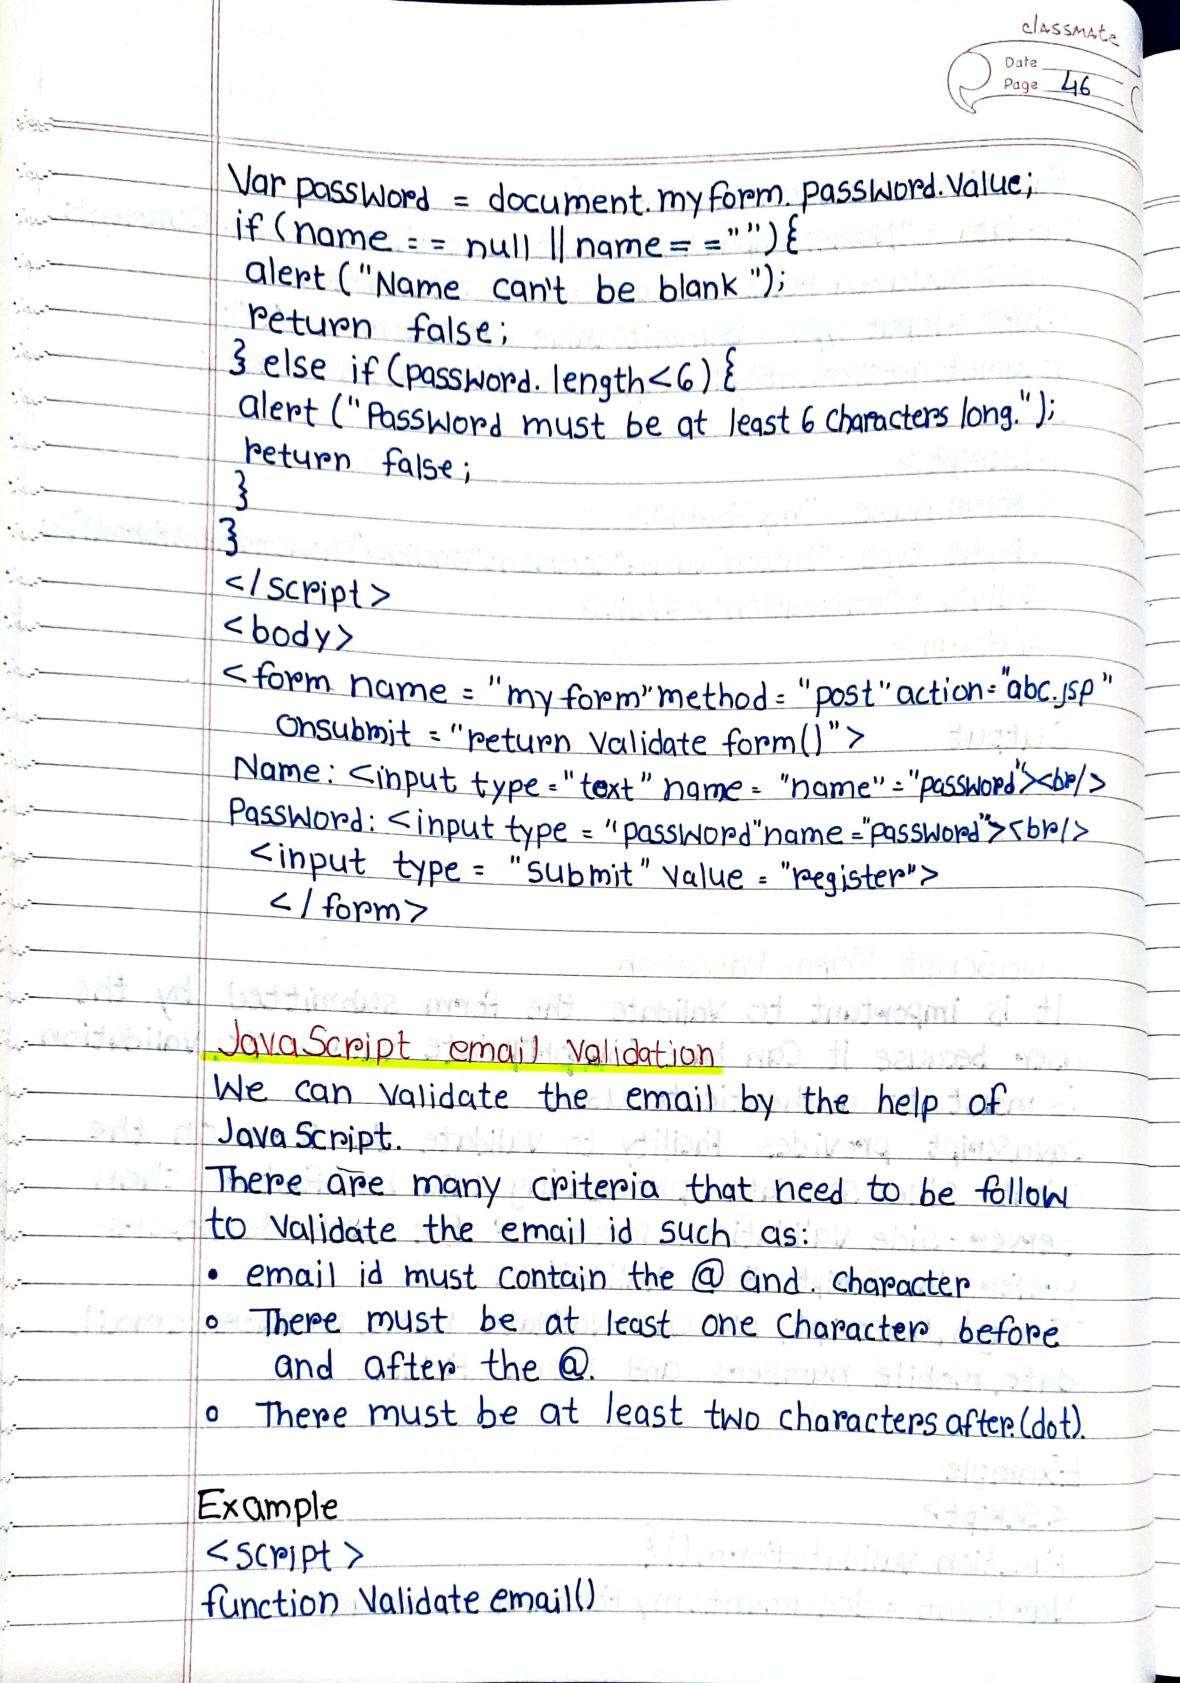 classmate
Date
Page 46
Var password = document.myform.password.value;
if (name == null || name == ""){
alert ("Name can't be blank");
return false;
} else if (password.length<6) {
alert ("Password must be at least 6 characters long.");
return false;
}
}
</script>
<body>
<form name = "my form" method = "post" action = "abc.jsp"
onsubmit = "return validate form()">
Name: <input type = "text" name = "name" = "password"><br/>
Password: <input type = "password" name = "password"><br/>
<input type = "submit" value = "register">
</form>
JavaScript email validation
We can validate the email by the help of
JavaScript.
There are many criteria that need to be follow
to validate the email id such as:
• email id must contain the @ and . character
o There must be at least one character before
and after the @.
o There must be at least two characters after.(dot).
Example
<script>
function Validate email()